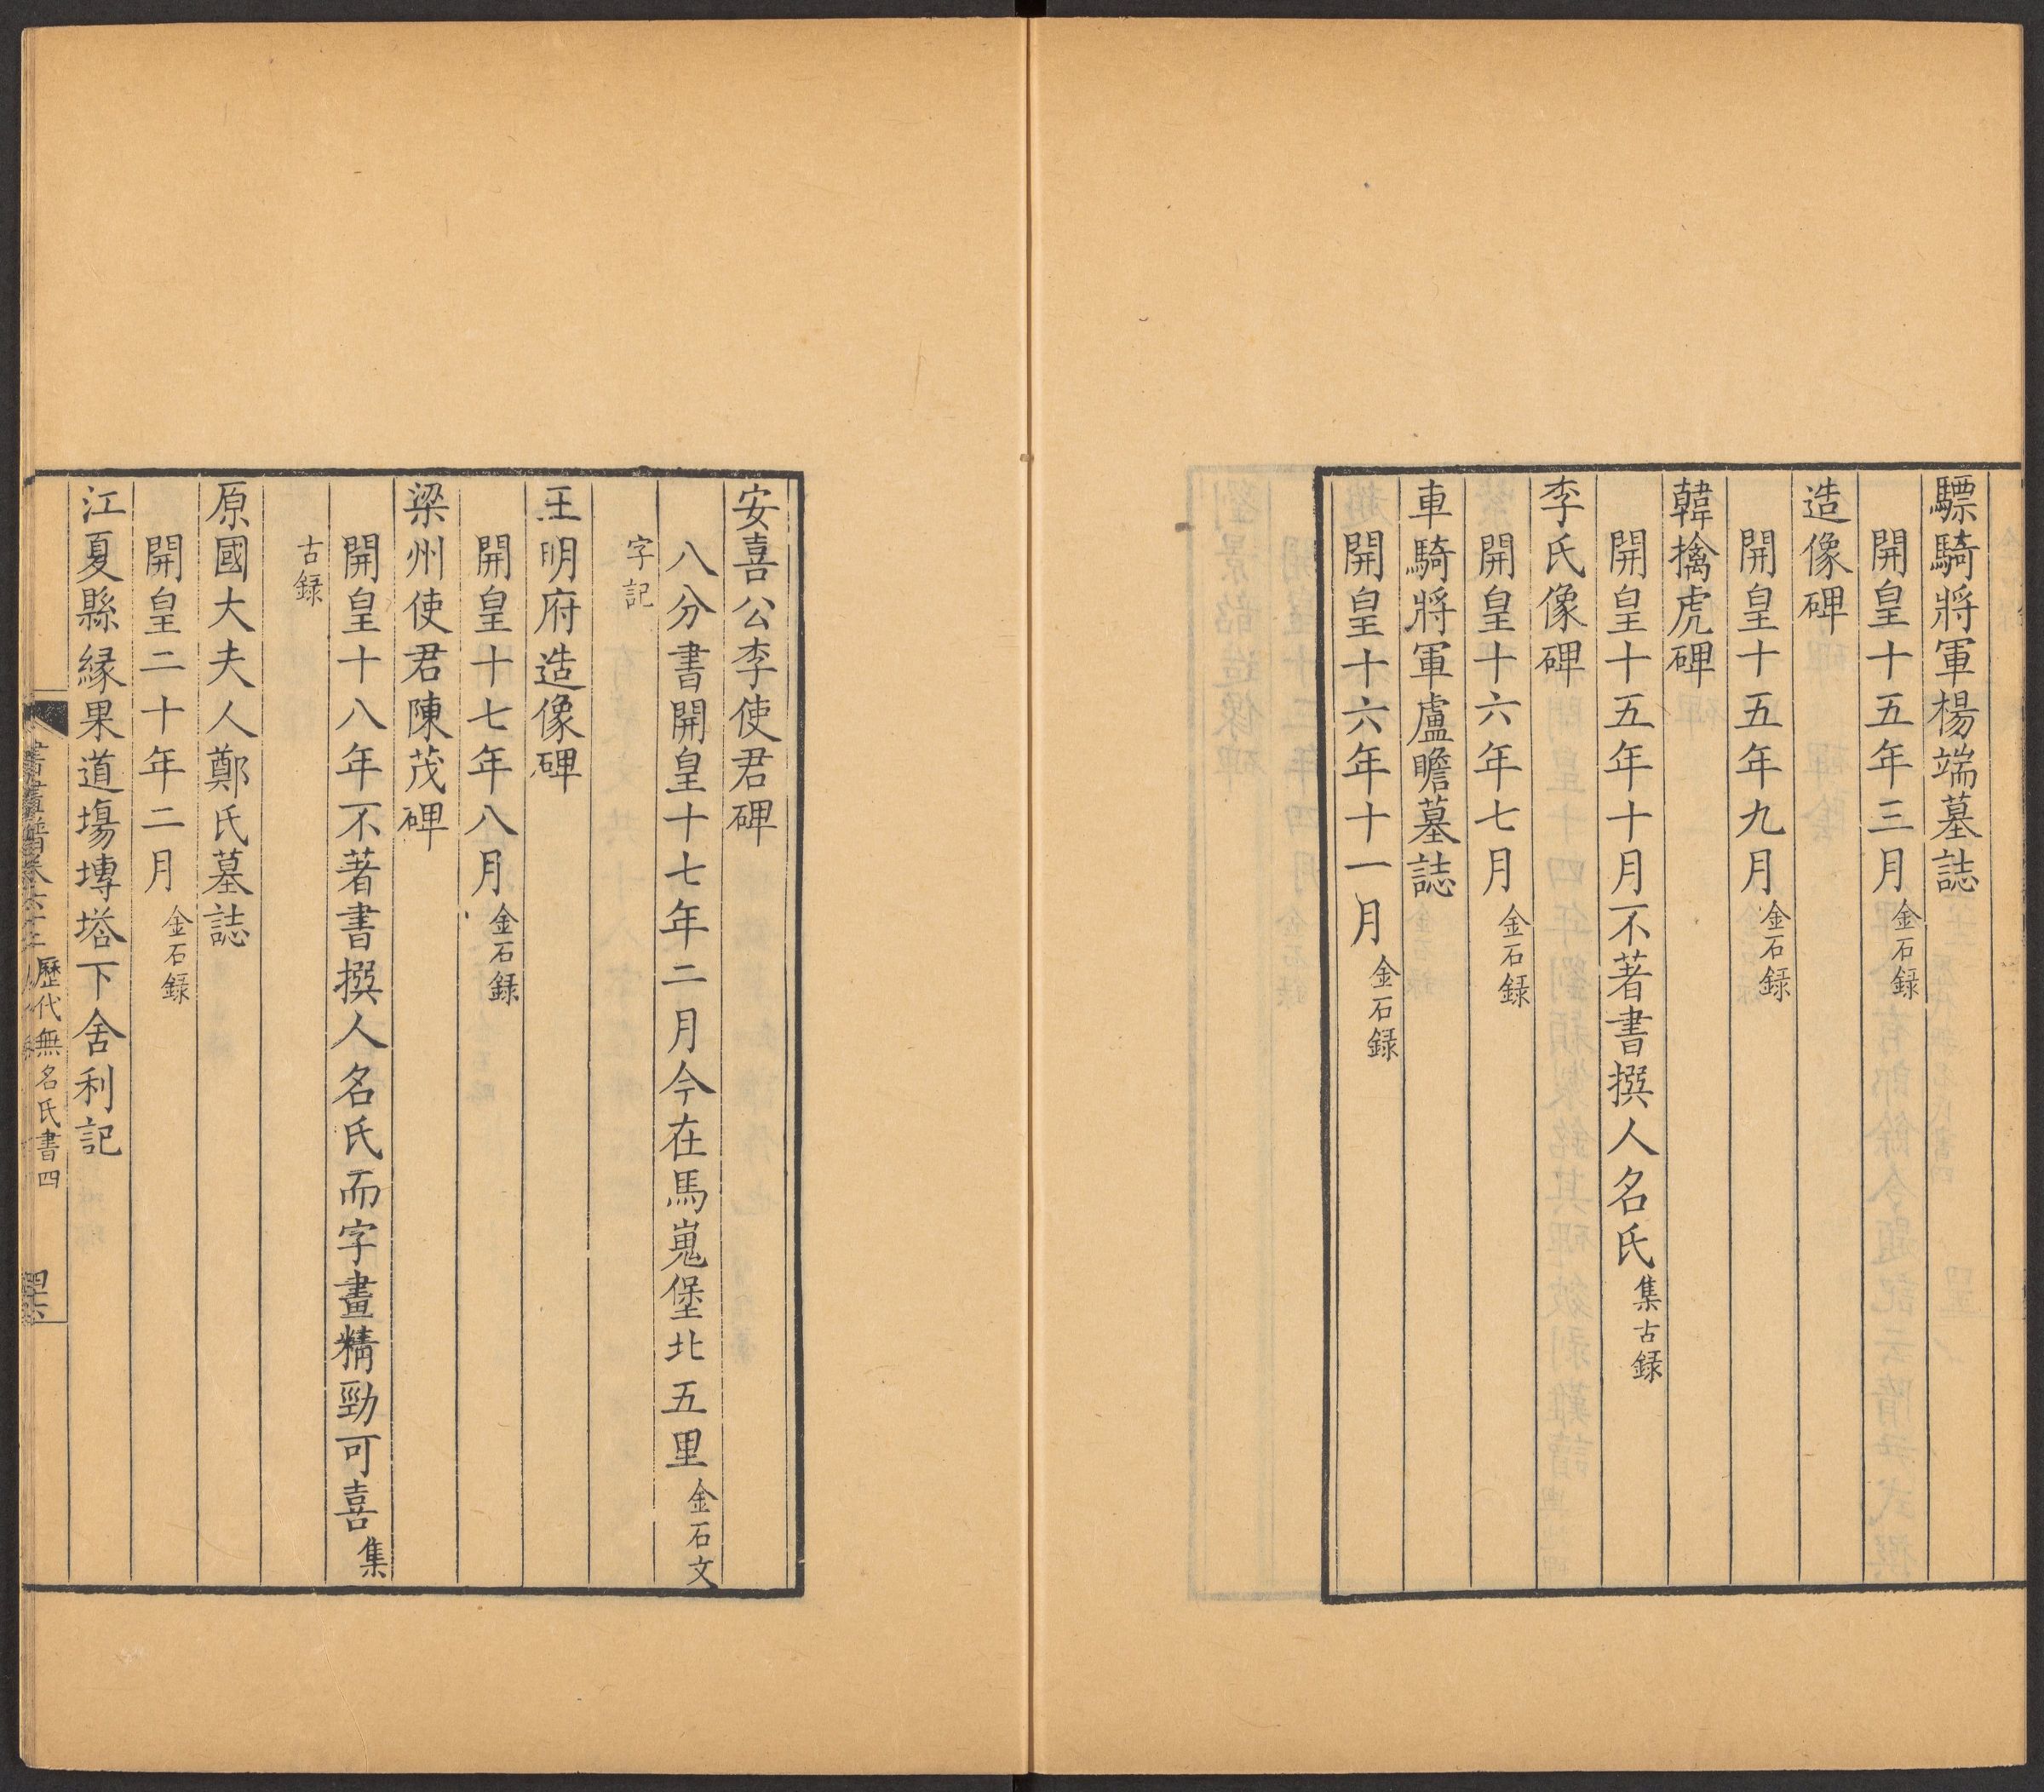 驃騎將軍楊端墓誌
開皇十五年三月金石録
造像碑
開皇十五年九月金石録
韓擒虎碑
開皇十五年十月不著書撰人名氏集古録
李氏像碑
開皇十六年七月金石録
車騎將軍盧瞻墓誌
開皇十六年十一月金石録
安喜公李使君碑
八分書開皇十七年二月今在馬嵬堡北五里金石文
字記
王明府造像碑
開皇十七年八月金石録
梁州使君陳茂碑
開皇十八年不著書撰人名氏而字畫精勁可喜集
古録
原國大夫人鄭氏墓誌
開皇二十年二月金石録
江夏縣緣果道場塼塔下舍利記
書畫譜卷六十二歷代無名氏書四